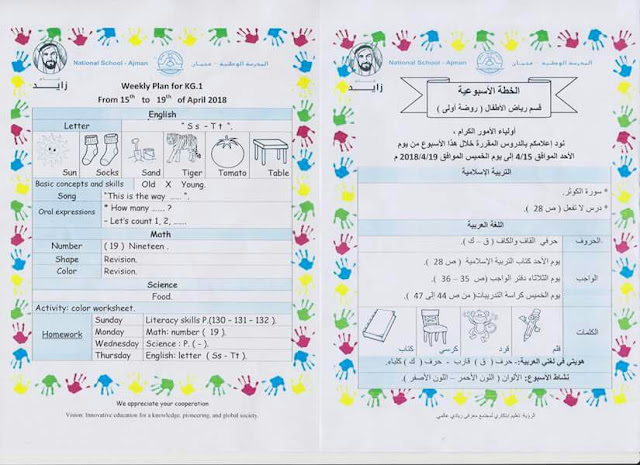 National School - Ajman
المدرسة الوطنية - عجمان
زايد
Weekly Plan for KG.1
From 15th to 19th of April 2018
English
Letter " S s – T t ".
Sun Socks Sand Tiger Tomato Table
Basic concepts and skills Old X Young.
Song "This is the way ...... ".
Oral expressions * How many ...... ?
– Let's count 1, 2, ......
Math
Number ( 19 ) Nineteen .
Shape Revision.
Color Revision.
Science
Food.
Activity: color worksheet.
Homework
Sunday Literacy skills P.(130 – 131 – 132 ).
Monday Math: number ( 19 ).
Wednesday Science : P. ( - ).
Thursday English: letter ( Ss – Tt ).
We appreciate your cooperation
Vision: Innovative education for a knowledge, pioneering, and global society.
National School - Ajman
المدرسة الوطنية - عجمان
زايد
الخطة الأسبوعية
قسم رياض الأطفال ( روضة أولى )
أولياء الأمور الكرام ،
نود إعلامكم بالدروس المقررة خلال هذا الأسبوع من يوم
الأحد الموافق 4/15 إلى يوم الخميس الموافق 2018/4/19 م
التربية الإسلامية
* سورة الكوثر.
* درس لا تغعل ( ص 28 ).
اللغة العربية
الحروف. حرفي القاف والكاف ( ق – ك ).
الواجب
يوم الأحد كتاب التربية الإسلامية ( ص 28 ).
يوم الثلاثاء دفتر الواجب (ص 35 – 36 ).
يوم الخميس كراسة التدريبات( من ص 44 إلى 47 ).
الكلمات
قلم قرد كرسي كتاب
هويتي في لغتي العربية: حرف ( ق ) قارب - حرف ( ك ) كثباء.
نشاط الأسبوع: الألوان ( اللون الأحمر – اللون الأصفر ).
الرؤية: تعليم ابتكاري لمجتمع معرفي ريادي عالمي